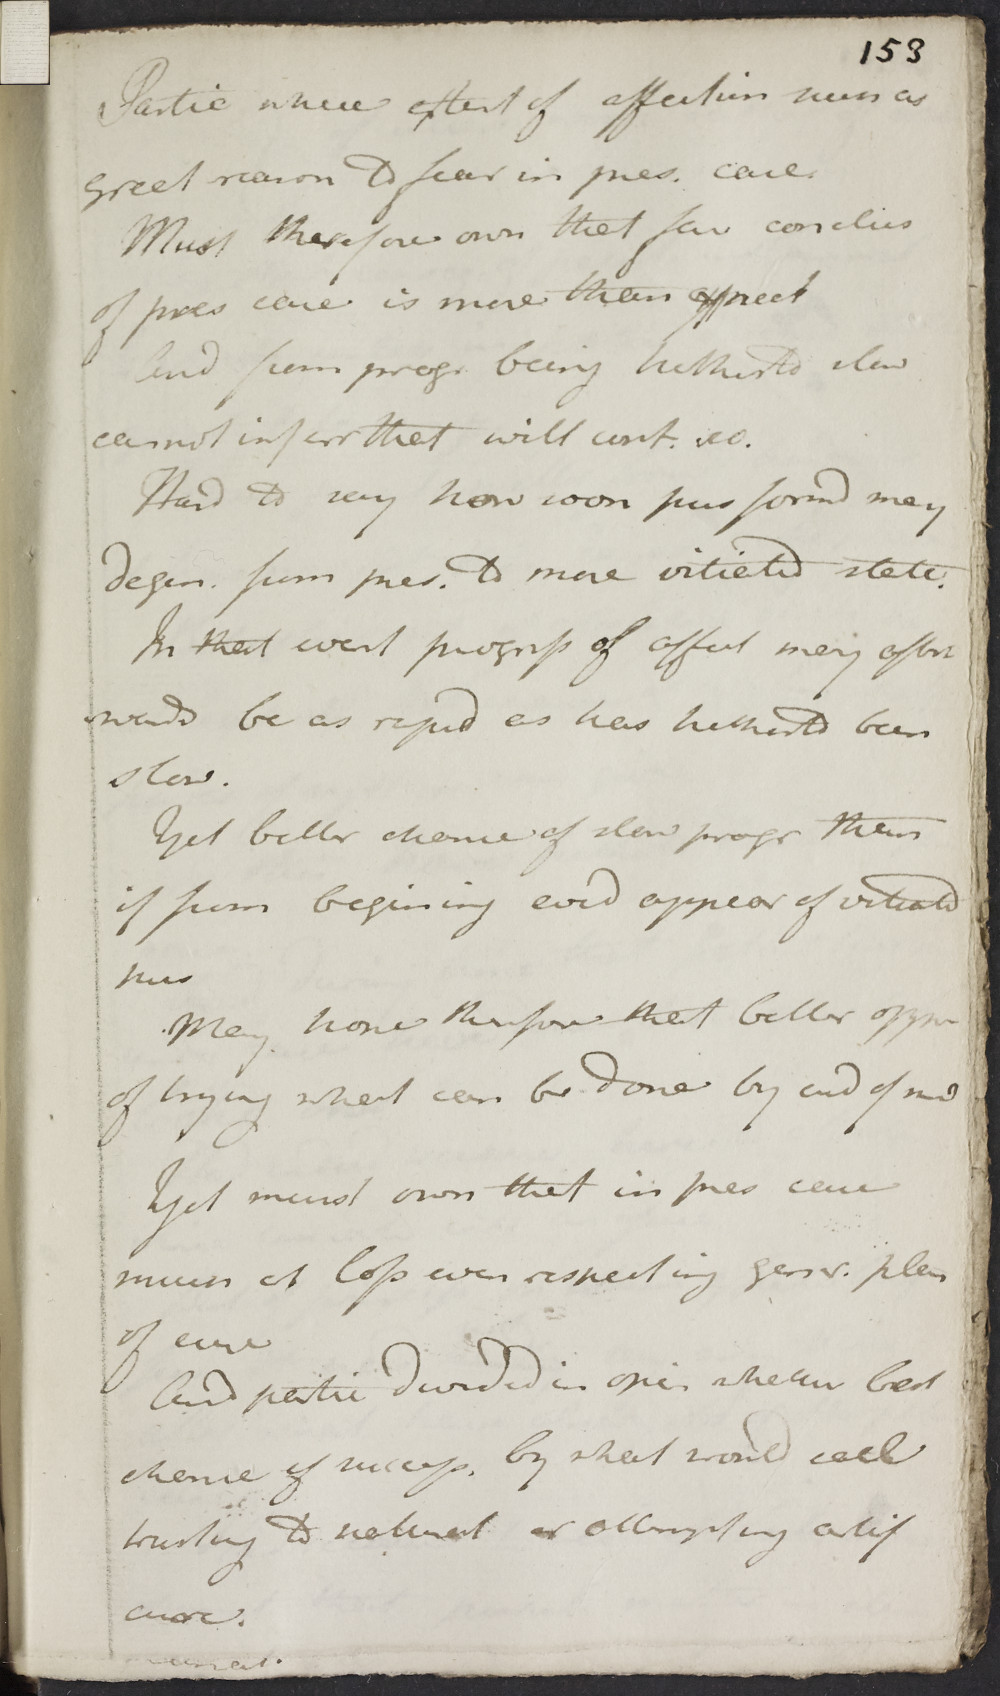 153
Partic where extent of affection such as
great reason to fear in pres. case
Must therefore own that fav conclus
of pres case is more than expect
And from progr being hitherto slow
cannot inferr that will cont. so.
Hard to say how soon pus formd may
degen. from pres. to more vitiated state.
In that event progress of affect may after
wards be as rapid as has hitherto been
slow.
Yet better chance of slow progr than
if from begining evid appear of vitiated
pus
May hope therefore that better oppor
of trying what can be done by aid of med
Yet must own that in pres case
much at loss even respecting gener. plan
of cure
And partic divided in opin whether best
chance of success, by what would call
trusting to natural or attempting artif
cure.